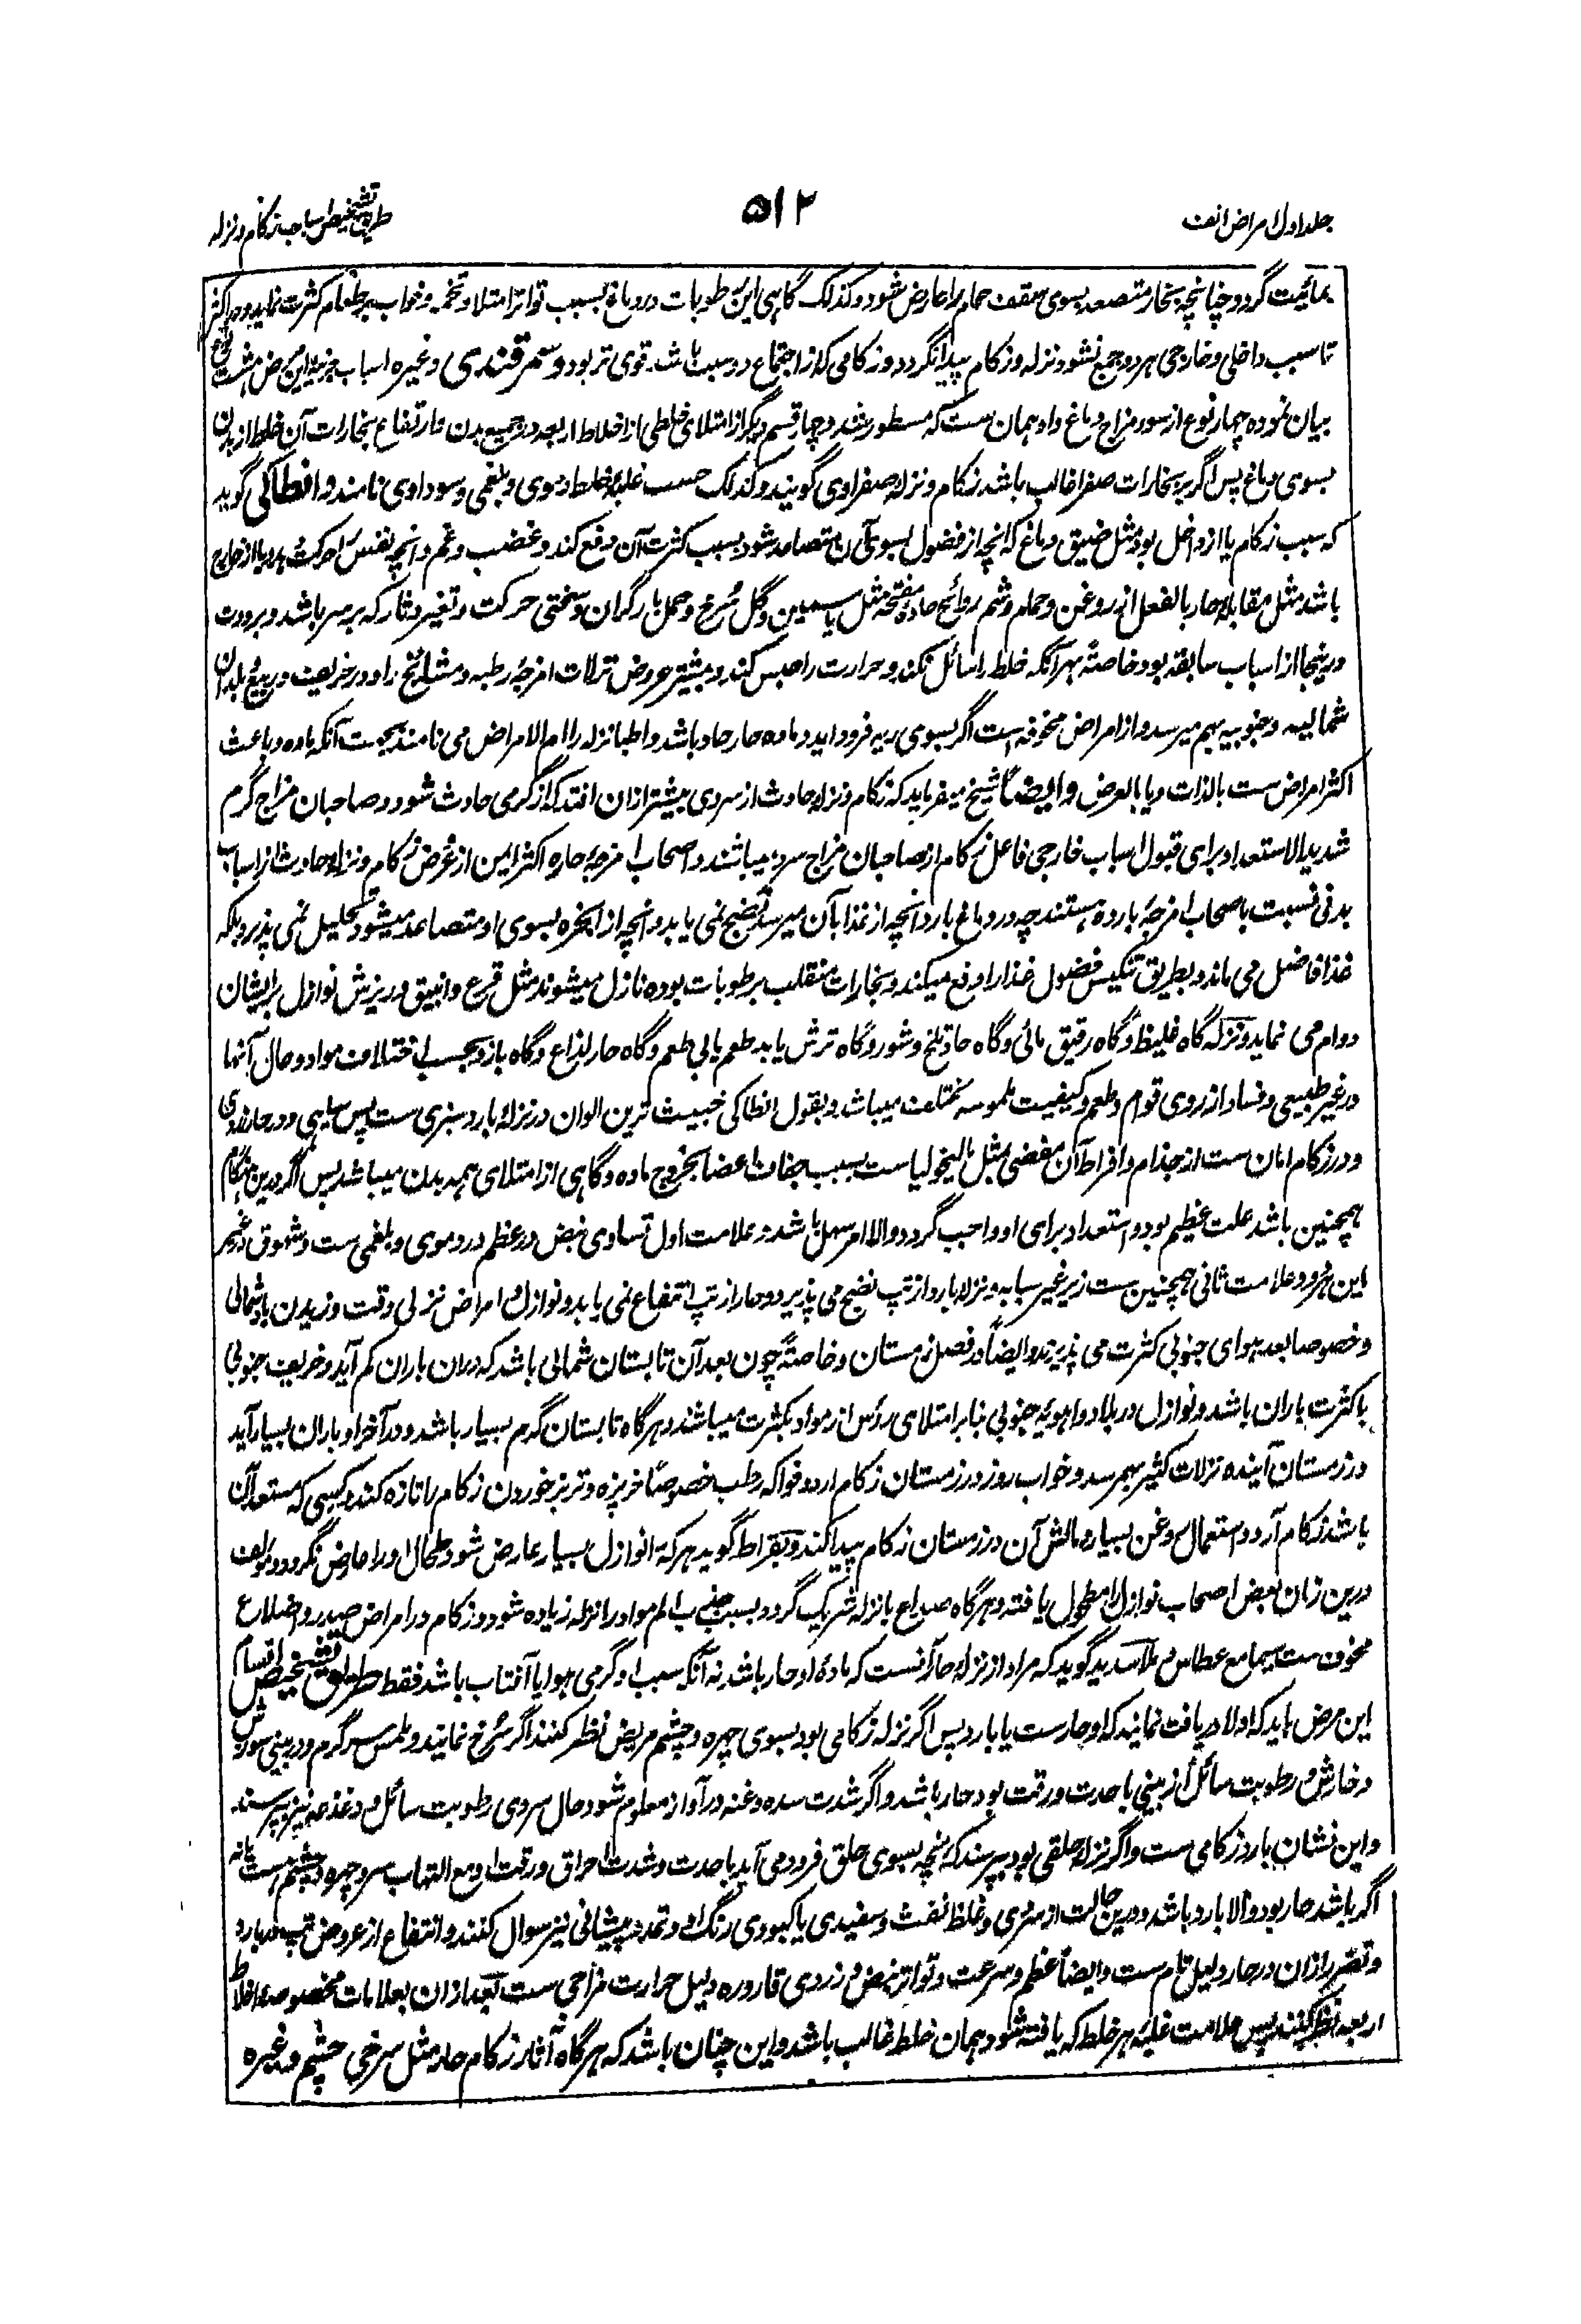 جلد اول امراض انف
۵۱۲
طریق تشخیص اسباب زکام و نزله
بمائیت گردد چنانچه بخار متصعد بسوی سقف حمام را عارض شود و کذلک گاهی این رطوبات در دماغ بسبب تواتر امتلا و تخمه و خواب بر طعام کثرت نماید و در اکثر
تا سبب داخلی و خارجی هر دو جمع نشود نزله و زکام پیدا نگردد و زکامی که از اجتماع دو سبب باشد قوی تر بود و سمرقندی و غیره اسباب این مرض هشت نوع
بیان نموده چهار نوع از سوء مزاج دماغ و او همان ست که مسطور شد و چهار قسم دیگر از امتلای خلطی از اخلاط اربعه در جمیع بدن و ارتفاع بخارات آن خلط از بدن
بسوی دماغ پس اگر بر بخارات صفرا غالب باشد زکام و نزله صفراوی گویند و کذلک حسب غلبه خلط دموی و بلغمی و سوداوی نامند و انطاکی گوید
که سبب زکام یا از داخل بود مثل ضیق دماغ که آنچه از فضول بسوی آن متصاعد شود بسبب کثرت آن دفع کند و غضب و غم و آنچه نفس را حرکت دهد و یا از خارج
باشد مثل مقابله حار بالفعل از روغن و حمام و شم روائح حاده مفتحه مثل یاسمین و گل سرخ و حمل بار گران و سختی حرکت و تغیر دثار که بر سر باشد و برودت
درینجا از اسباب سابقه بود خاصةً بهر آنکه خلط را سائل نکند و حرارت را حبس کند و بیشتر عروض نزلات امزجه رطبه و مشائخ را و در خریف و ربیع بلدان
شمالیه و جنوبیه بهم میرسد و از امراض مخوفه است اگر بسوی ریه فرود آید و ماده حار حاد باشد و اطبا نزله را ام الامراض می نامند بجهت آنکه ماده و باعث
اکثر امراض ست بالذات و یا بالعرض و ایضاً شیخ میفرماید که زکام و نزله حادث از سردی بیشتر ازان افتد که از گرمی حادث شود و صاحبان مزاج گرم
شدید الاستعداد برای قبول اسباب خارجی فاعل زکام از صاحبان مزاج سرد میباشند و اصحاب امزجه حاره اکثر ایمن از عرض زکام و نزله حادث از اسباب
بدنی نسبت باصحاب امزجه بارده هستند چه در دماغ بارد آنچه از غذا بآن میرسد نضج نمی یابد و آنچه از ابخره بسوی او متصاعد میشود تحلیل نمی پذیرد بلکه
غذا فاضل می ماند و بطریق تنکیس فضول غذا را دفع میکند و بخارات منقلب برطوبات بوده نازل میشوند مثل قرع و انبیق و ریزش نوازل بر ایشان
دوام می نماید و نزله گاه غلیظ و گاه رقیق مائی و گاه حاد تلخ و شور و گاه ترش یا بد طعم یا بی طعم و گاه حار لذاع و گاه بارد بحسب اختلاف مواد و حال آنها
در غیر طبیعی و فساد از روی قوام و طعم و کیفیت ملموسه مختلف میباشد و بقول انطاکی خبیث ترین الوان در نزله بارد سبزی ست پس سیاهی و در حار زردی
و در زکام امان ست از جذام و افراط آن مفضی بمثل مالیخولیا ست بسبب جفاف اعضا بخروج ماده و گاهی از امتلای همه بدن میباشد پس اگر درین هنگام
همچنین باشد علت عظیم بود و استعداد برای او واجب گردد و الا امر سهل باشد و علامت اول تساوی نبض در عظم در دموی و بلغمی ست و شهوق در غیر
این هر دو علامت ثانی همچنین ست زیر غیر سبابه و نزله بارد از تپ نضج می پذیرد و حار از تپ انتفاع نمی یابد و نوازل و امراض نزلی وقت وزیدن باد شمالی
و خصوصا بعد هوای جنوبی کثرت می پذیرند و ایضاً در فصل زمستان و خاصةً چون بعد آن تابستان شمالی باشد که دران باران کم آید و خریف جنوبی
با کثرت باران باشد و نوازل در بلاد و اهویه جنوبی بنا بر امتلای رؤس از مواد بکثرت میباشند و هر گاه تابستان گرم بسیار باشد و در آخر او باران بسیار آید
در زمستان آینده نزلات کثیر بهم رسد و خواب روز در زمستان زکام آرد و فواکه رطب خصوصاً خربزه و تربز خوردن زکام را تازه کند و کسی که مستعد آن
باشد زکام آرد و استعمال روغن بسیار و مالش آن در زمستان زکام پیدا کند و بقراط گوید هر که را نوازل بسیار عارض شود طحال او را عارض نگردد و مؤلف
درین زمان بعض اصحاب نوازل را مطحول یافته و هر گاه صداع با نزله شریک گردد بسبب جذب الم مواد را نزله زیاده شود و زکام در امراض صدر و اضلاع
مخوف ست سیما مع عطاس و ملا سدید گوید که مراد از نزله حار آنست که ماده او حار باشد نه آنکه سبب او گرمی هوا یا آفتاب باشد فقط طریق تشخیص اقسام
این مرض باید که اولا دریافت نمایند که او حارست یا بارد پس اگر نزله زکامی بود بسوی چهره و چشم مریض نظر کنند اگر سرخ نمایند و ملمس سر گرم و در بینی سوزش
و خارش و رطوبت سائل از بینی با حدت و رقت بود حار باشد و اگر شدت سده و غنه در آواز معلوم شود حال سردی رطوبت سائل و دغدغه نیز بپرسند
و این نشان بارد زکامی ست و اگر نزله حلقی بود بپرسند که آنچه بسوی حلق فرود می آید با حدت و شدت احراق و رقت او مع التهاب سر و چهره و چشم ست یا نه
اگر باشد حار بود و الا بارد باشد و درین حالت از سردی و غلظ نفث و سفیدی یا کبودی رنگ او و تمدد پیشانی نیز سوال کنند و انتفاع از عروض تپ در بارد
و تضرر ازان در حار دلیل تام ست و ایضاً عظم و سرعت و تواتر نبض و زردی قاروره دلیل حرارت مزاجی ست بعد ازان بعلامات مخصوصه اخلاط
اربعه نظر کنند پس علامت غلبه هر خلط که یافته شود همان خلط غالب باشد و این چنان باشد که هر گاه آثار زکام حار مثل سرخی چشم و غیره